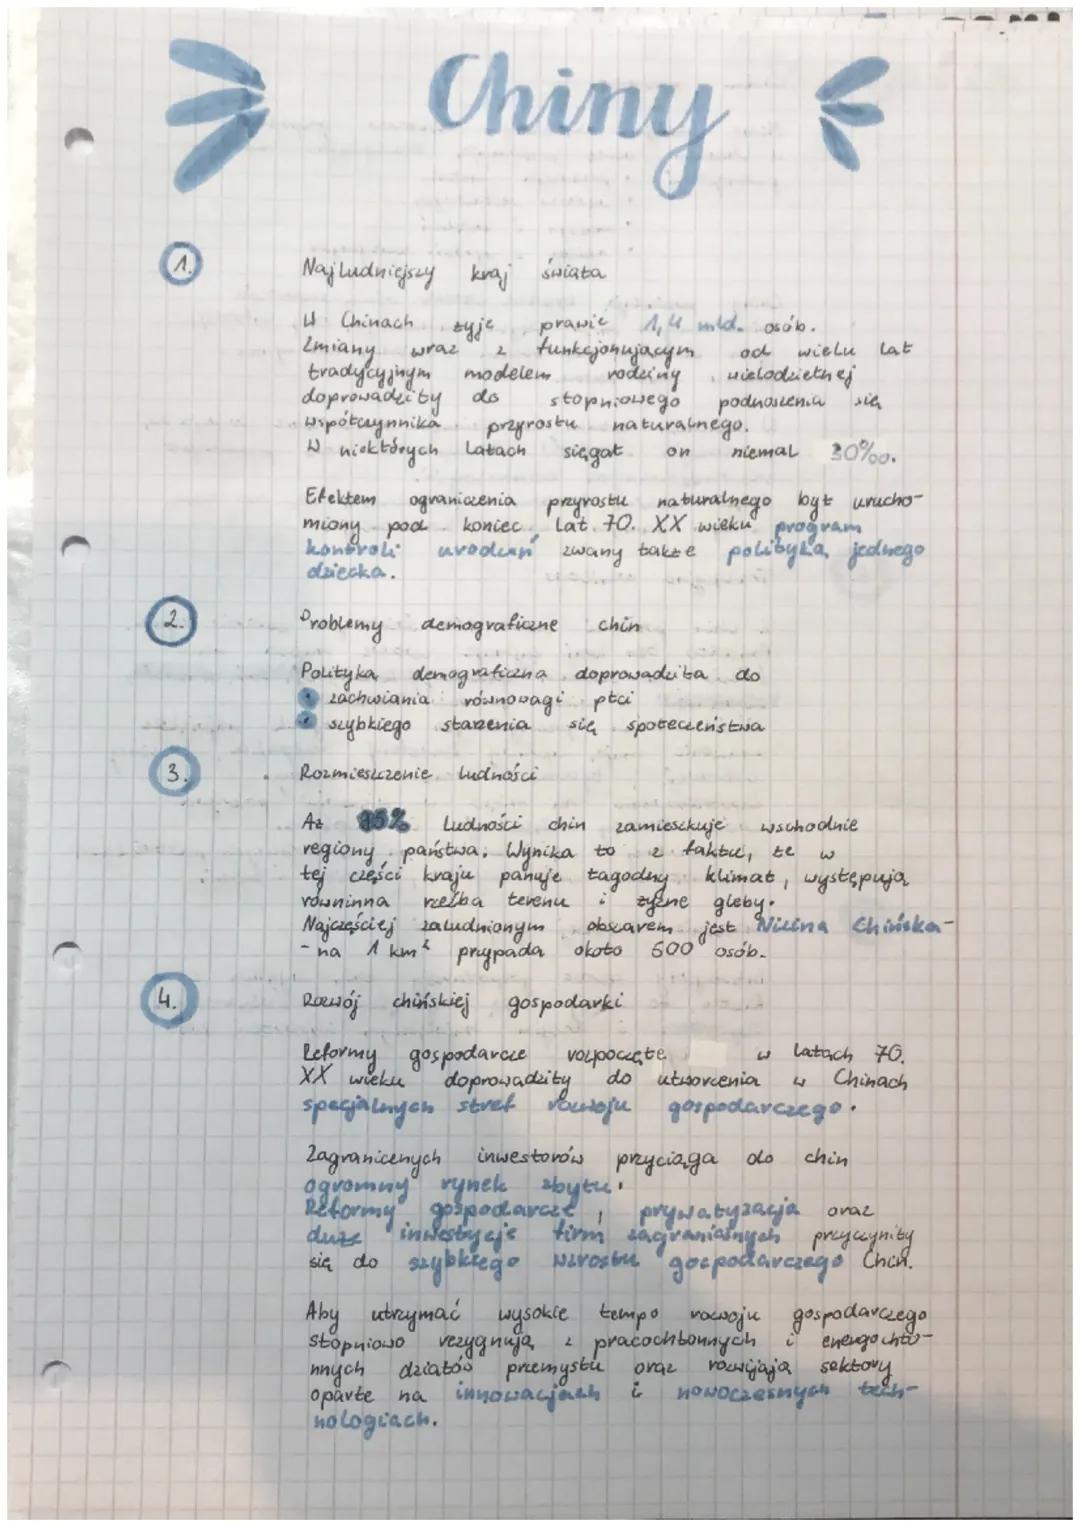 Chiny
1.
Najludniejszy kraj świata
W Chinach żyje prawie 1,4 mld. osób.
Zmiany wraz z funkcjonującym od wielu lat
tradycyjnym modelem rodziny wielodzietnej
doprowadziły do stopniowego podnoszenia się
współczynnika przyrostu naturalnego.
W niektórych latach sięgał on niemal 30‰.
Efektem ograniczenia przyrostu naturalnego był urucho-
miony pod koniec lat 70. XX wieku program
kontroli urodzeń zwany także polityką jednego
dziecka.
2.
Problemy demograficzne chin
Polityka demograficzna doprowadziła do
• zachwiania równowagi płci
• szybkiego starzenia się społeczeństwa
3.
Rozmieszczenie ludności
Aż 95% ludności chin zamieszkuje wschodnie
regiony państwa. Wynika to z faktu, że w
tej części kraju panuje łagodny klimat, występują
równinna rzeźba terenu i żyzne gleby.
Najczęściej zaludnionym obszarem jest Nizina Chińska-
- na 1 km² przypada około 600 osób.
4.
Rozwój chińskiej gospodarki
Reformy gospodarcze rozpoczęte w latach 70.
XX wieku doprowadziły do utworzenia w Chinach
specjalnych stref rozwoju gospodarczego.
Zagranicznych inwestorów przyciąga do chin
ogromny rynek zbytu.
Reformy gospodarcze, prywatyzacja oraz
duże inwestycje firm zagranicznych przyczyniły
się do szybkiego wzrostu gospodarczego Chin.
Aby utrzymać wysokie tempo rozwoju gospodarczego
stopniowo rezygnują z pracochłonnych i energochło-
nnych działów przemysłu oraz rozwijają sektory
oparte na innowacjach i nowoczesnych tech-
nologiach.